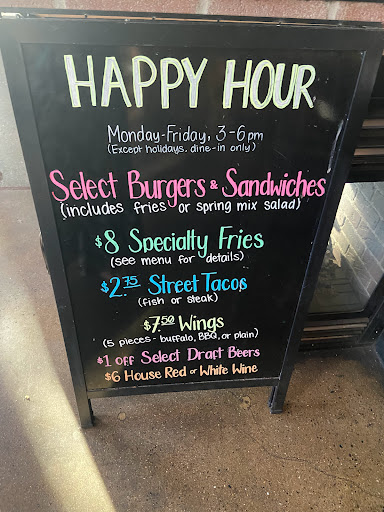 HAPPY HOUR
Monday-Friday, 3-6pm
(Except holidays. dine-in only)
Select Burgers & Sandwiches
(includes fries or spring mix salad)
$8 Specialty Fries
(see menu for details)
$2.75 Street Tacos
(fish or steak)
$7.50 Wings
(5 pieces - buffalo, BBQ, or plain)
$1 off Select Draft Beers
$6 House Red or White Wine